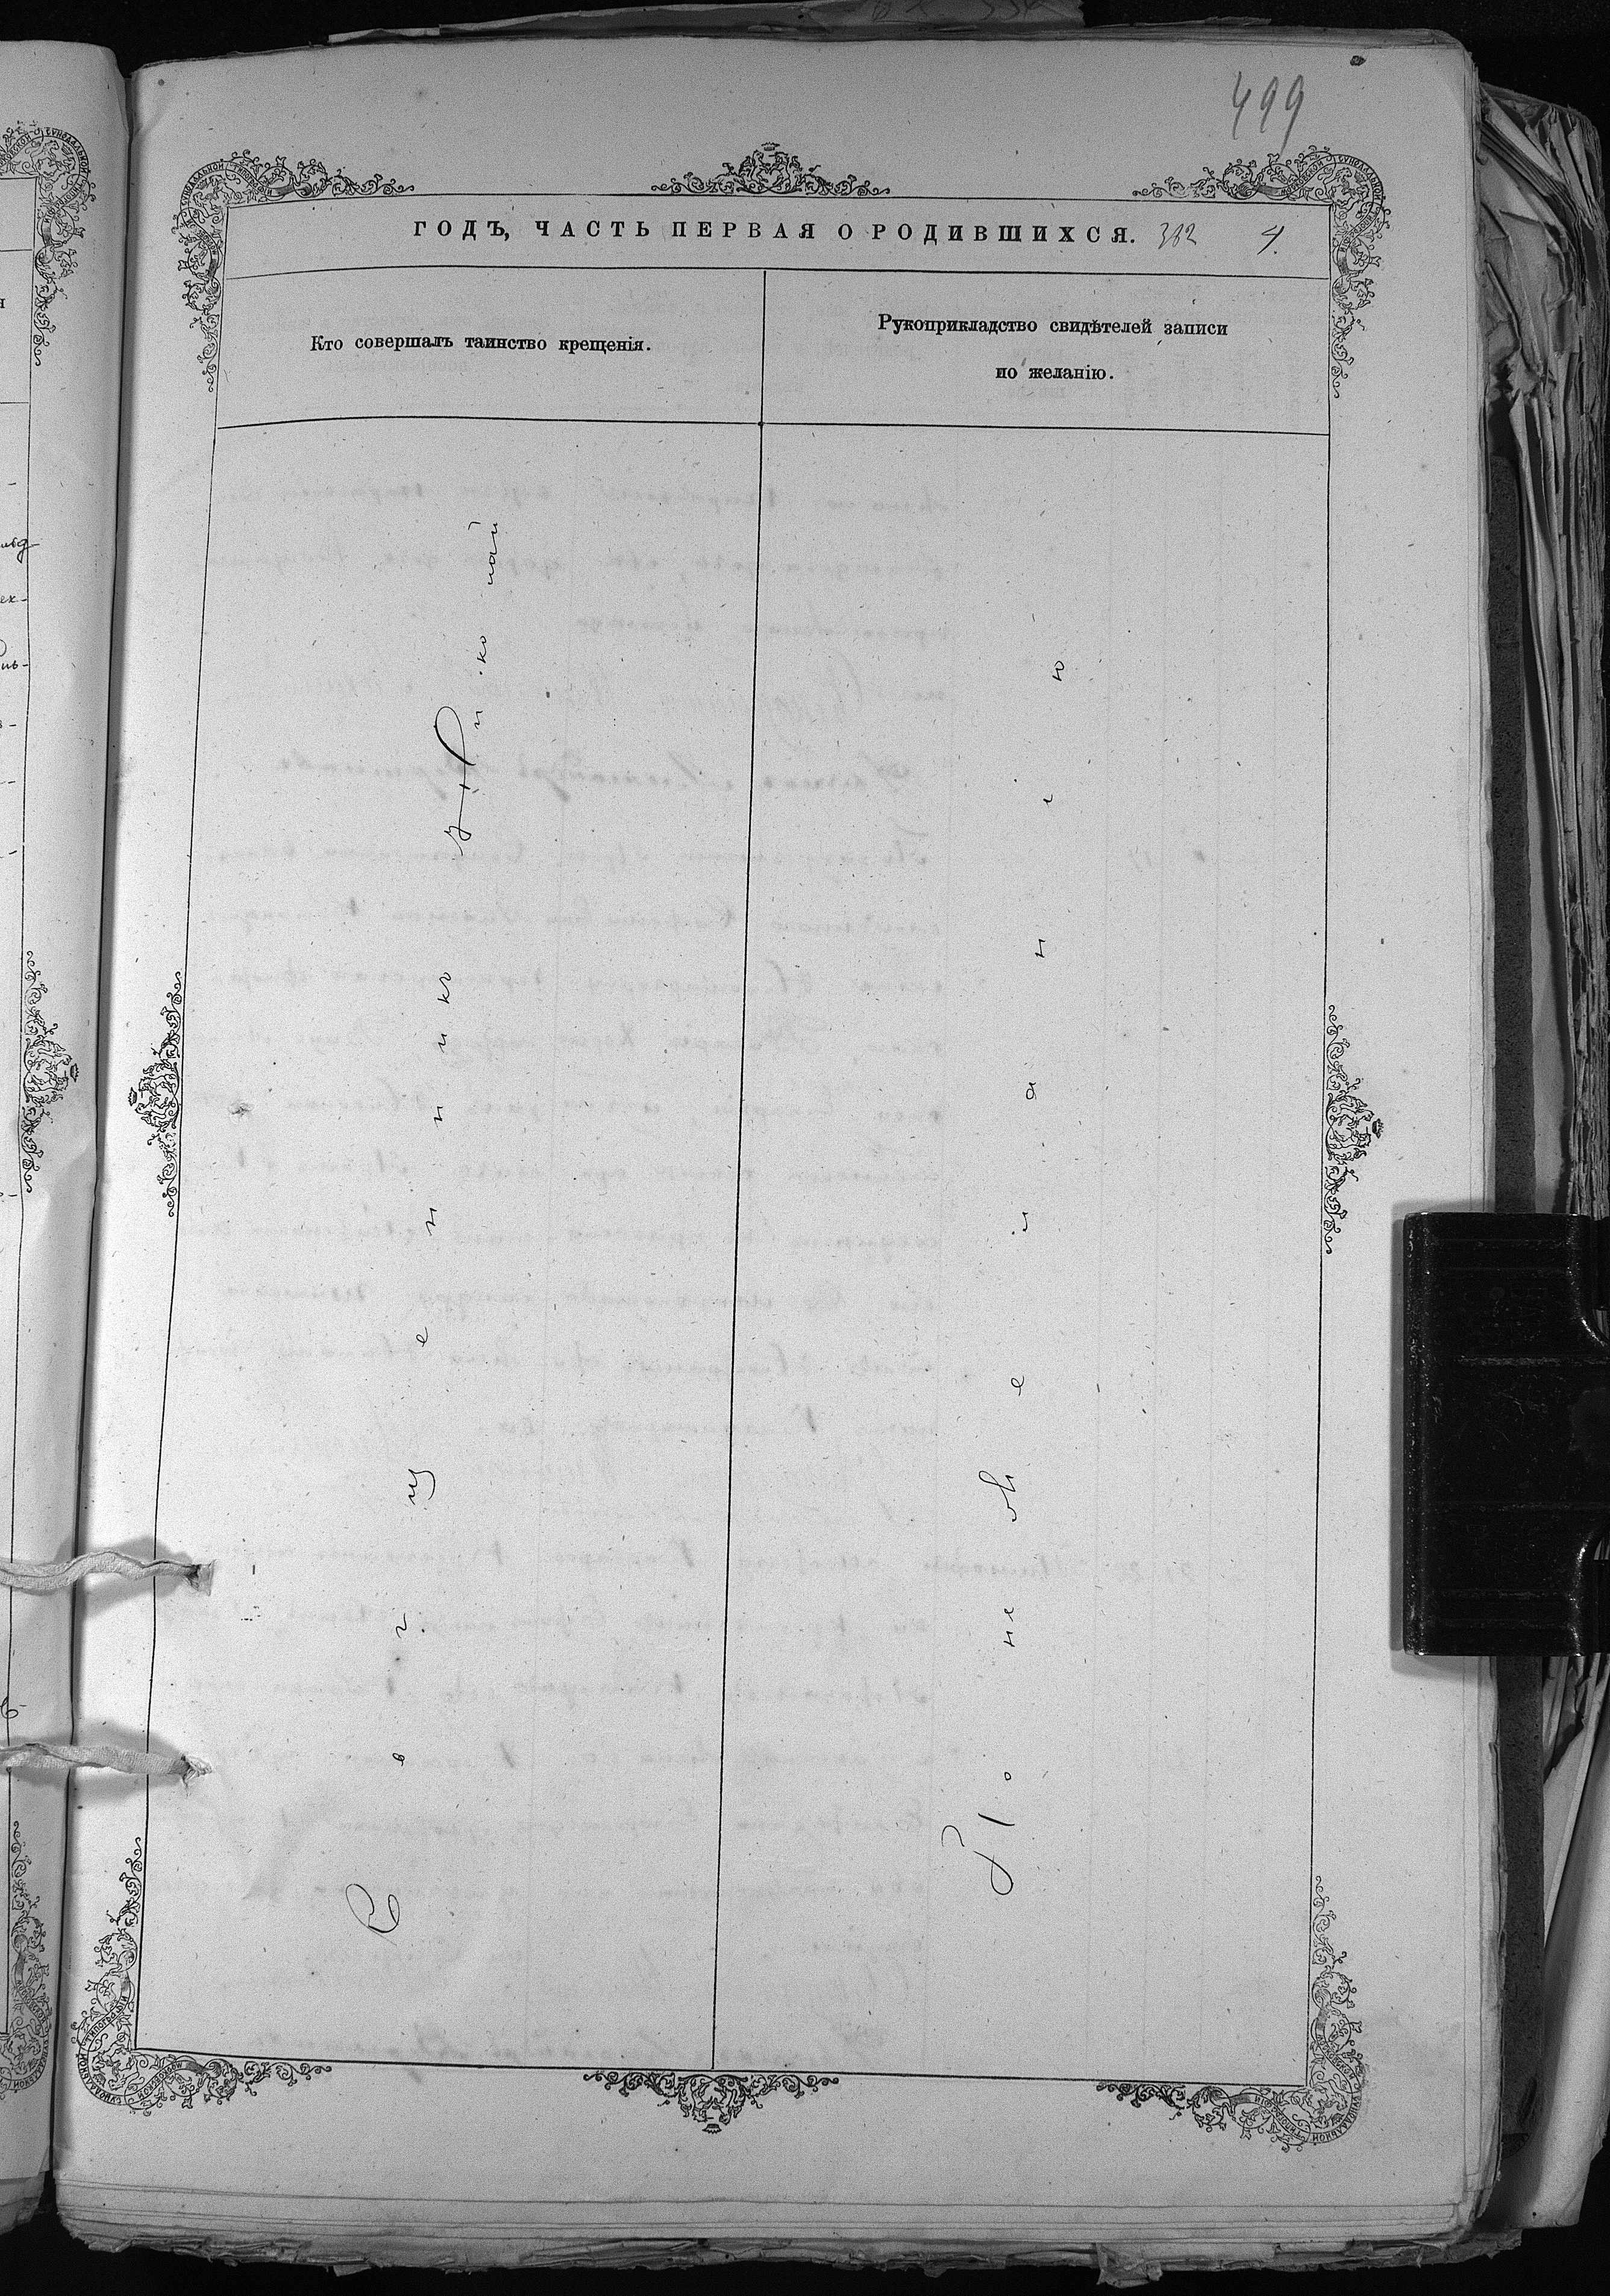 499
ГОДЪ, ЧАСТЬ ПЕРВАЯ О РОДИВШИХСЯ. 382 4.
Кто совершалъ таинство крещенія.
Рукоприкладство свидѣтелей записи
по желанію.
Священникъ Николай
По нежеланію